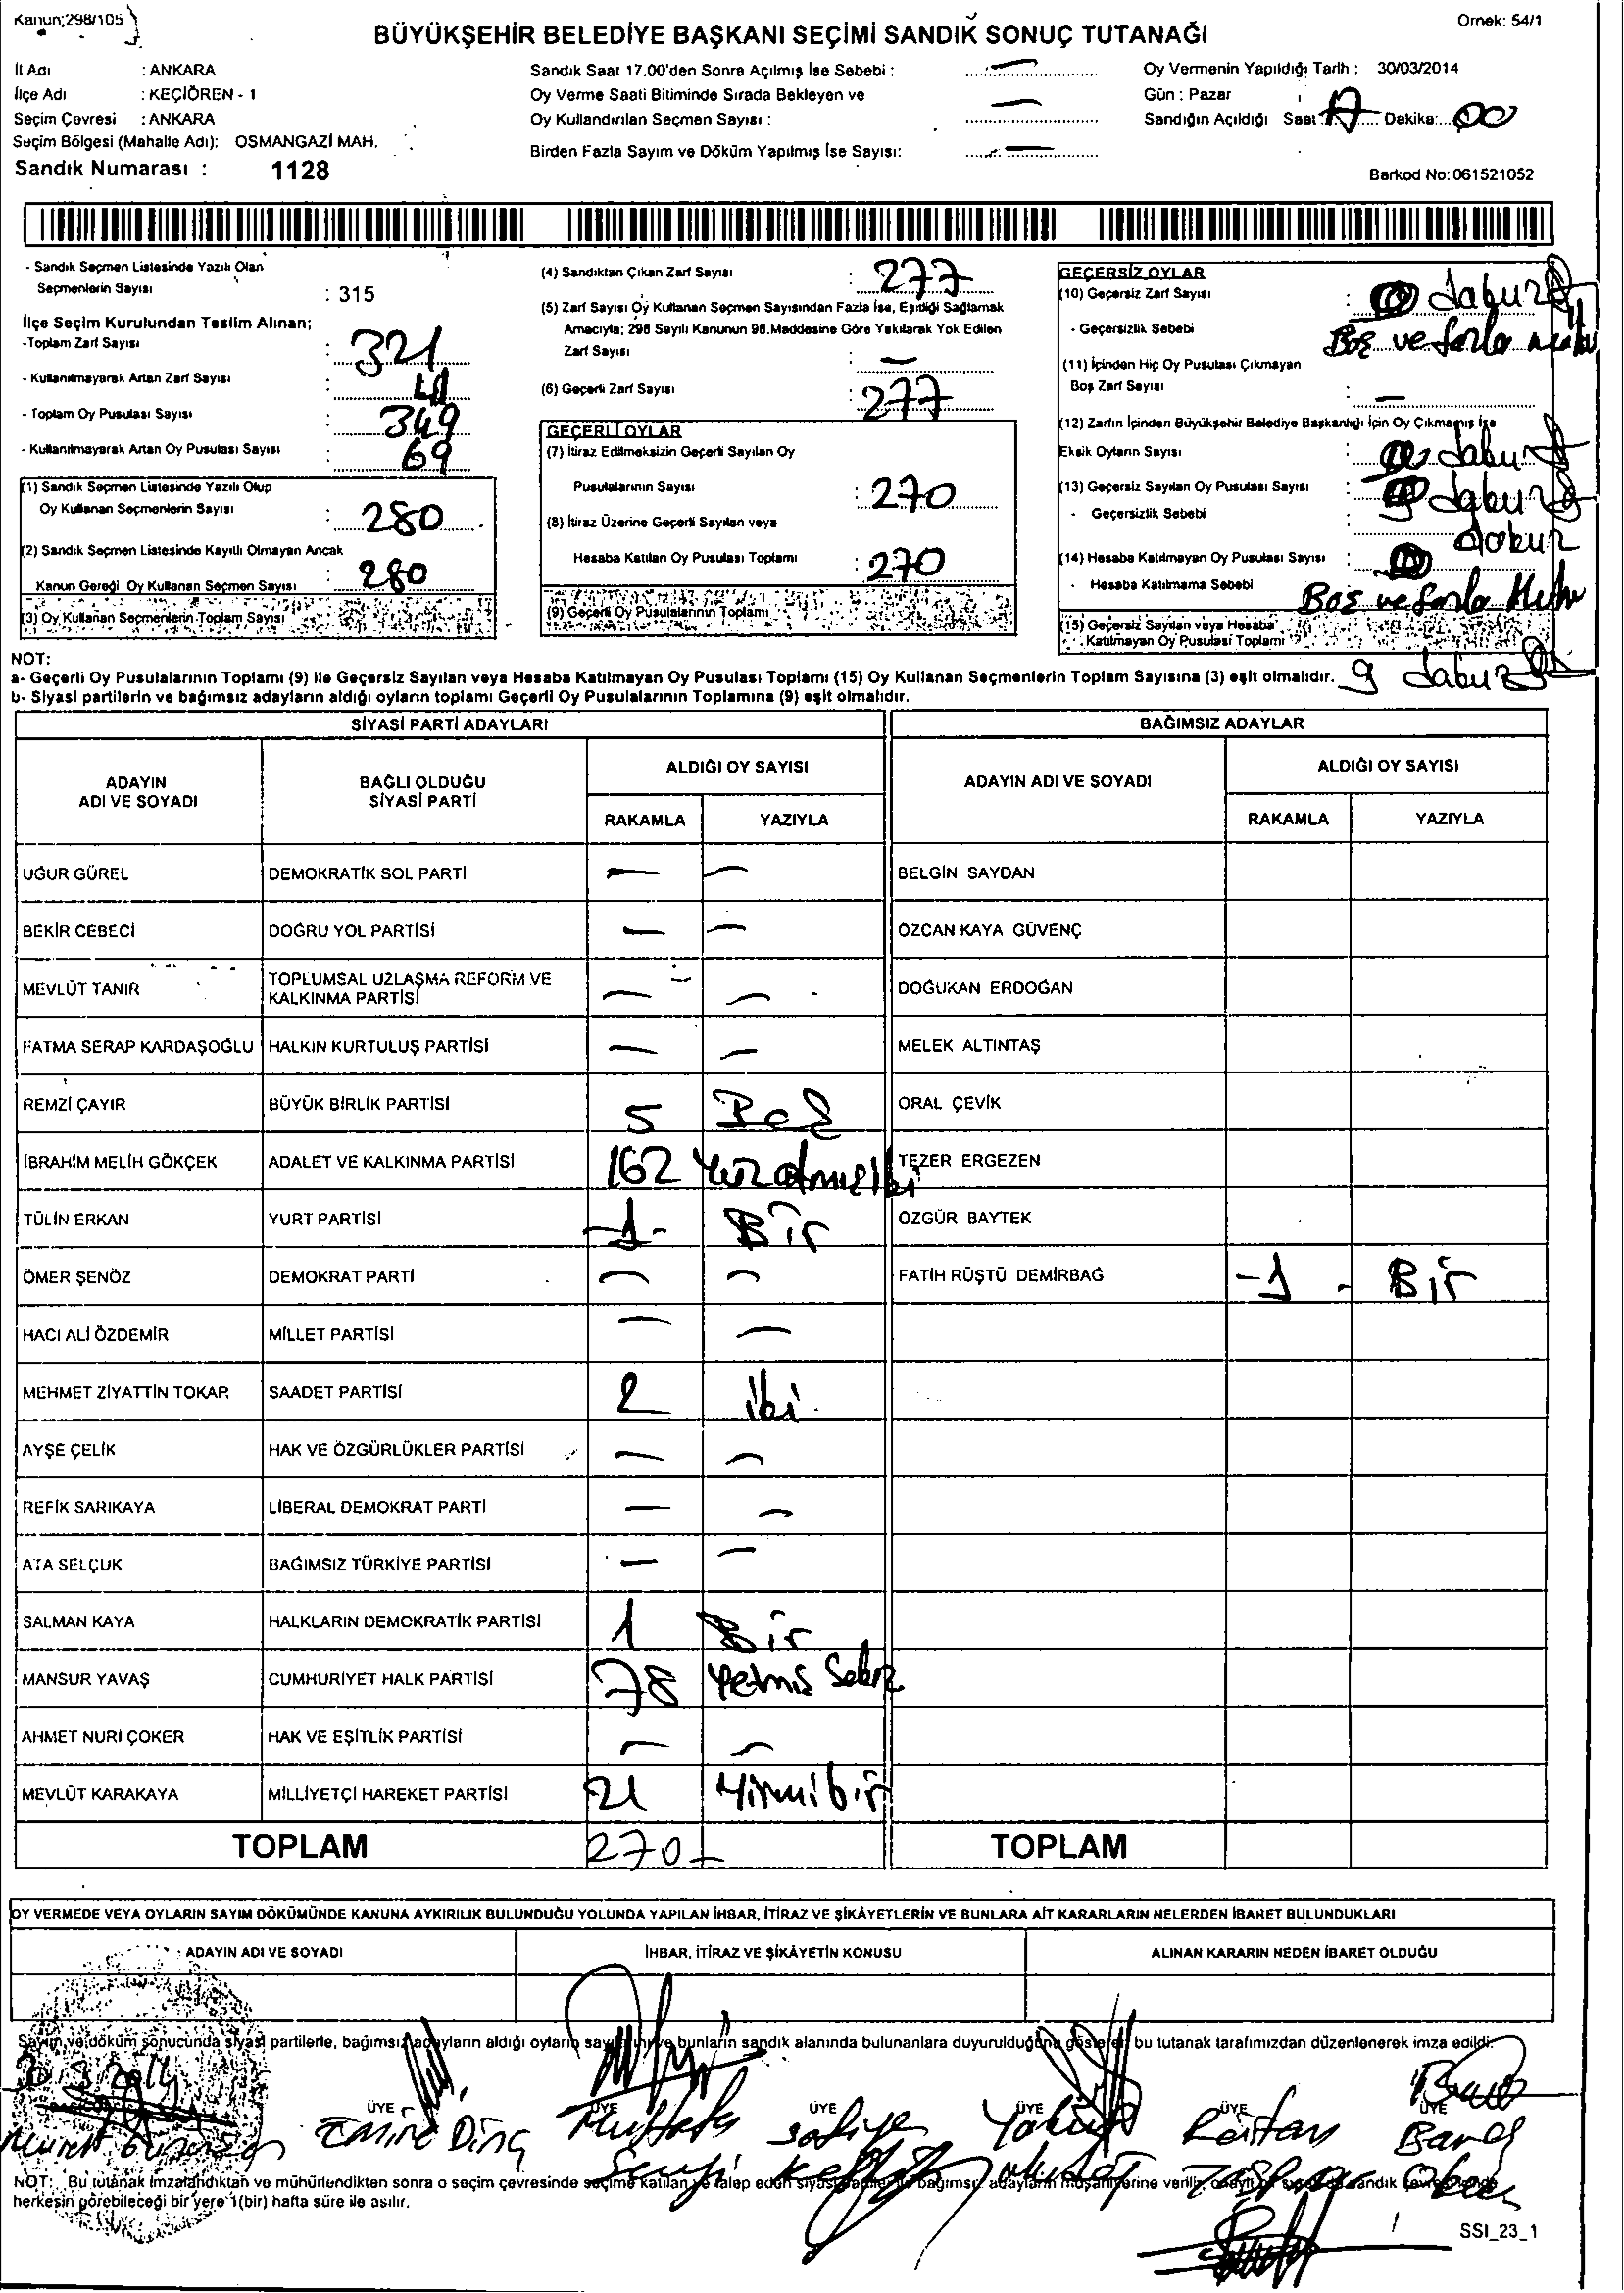 Kanun;298/105
Örnek: 54/1
BÜYÜKŞEHİR BELEDİYE BAŞKANI SEÇİMİ SANDIK SONUÇ TUTANAĞI
İl Adı : ANKARA
İlçe Adı : KEÇİÖREN - 1
Seçim Çevresi : ANKARA
Seçim Bölgesi (Mahalle Adı): OSMANGAZİ MAH.
Sandık Numarası : 1128
Sandık Saat 17.00'den Sonra Açılmış İse Sebebi : —
Oy Verme Saati Bitiminde Sırada Bekleyen ve
Oy Kullandırılan Seçmen Sayısı : —
Birden Fazla Sayım ve Döküm Yapılmış İse Sayısı: —
Oy Vermenin Yapıldığı Tarih : 30/03/2014
Gün : Pazar
Sandığın Açıldığı Saat: 17 Dakika: 00
Barkod No: 061521052
- Sandık Seçmen Listesinde Yazılı Olan
Seçmenlerin Sayısı : 315
İlçe Seçim Kurulundan Teslim Alınan;
-Toplam Zarf Sayısı : 321
- Kullanılmayarak Artan Zarf Sayısı :
- Toplam Oy Pusulası Sayısı : 349
- Kullanılmayarak Artan Oy Pusulası Sayısı : 69
(1) Sandık Seçmen Listesinde Yazılı Olup
Oy Kullanan Seçmenlerin Sayısı : 280
(2) Sandık Seçmen Listesinde Kayıtlı Olmayan Ancak
Kanun Gereği Oy Kullanan Seçmen Sayısı : 280
(3) Oy Kullanan Seçmenlerin Toplam Sayısı
(4) Sandıktan Çıkan Zarf Sayısı : 277
(5) Zarf Sayısı Oy Kullanan Seçmen Sayısından Fazla İse, Eşitliği Sağlamak
Amacıyla; 298 Sayılı Kanunun 98.Maddesine Göre Yakılarak Yok Edilen
Zarf Sayısı : —
(6) Geçerli Zarf Sayısı : 277
GEÇERLİ OYLAR
(7) İtiraz Edilmeksizin Geçerli Sayılan Oy
Pusulalarının Sayısı : 270
(8) İtiraz Üzerine Geçerli Sayılan veya
Hesaba Katılan Oy Pusulası Toplamı : 270
(9) Geçerli Oy Pusulalarının Toplamı
GEÇERSİZ OYLAR
(10) Geçersiz Zarf Sayısı :
- Geçersizlik Sebebi : Boş ve fazla
(11) İçinden Hiç Oy Pusulası Çıkmayan
Boş Zarf Sayısı : —
(12) Zarfın İçinden Büyükşehir Belediye Başkanlığı İçin Oy Çıkmamış İse
Eksik Oyların Sayısı :
(13) Geçersiz Sayılan Oy Pusulası Sayısı : 9
- Geçersizlik Sebebi : dokuz
(14) Hesaba Katılmayan Oy Pusulası Sayısı :
- Hesaba Katılmama Sebebi Boş ve fazla
(15) Geçersiz Sayılan veya Hesaba
Katılmayan Oy Pusulası Toplamı
NOT:
a- Geçerli Oy Pusulalarının Toplamı (9) ile Geçersiz Sayılan veya Hesaba Katılmayan Oy Pusulası Toplamı (15) Oy Kullanan Seçmenlerin Toplam Sayısına (3) eşit olmalıdır. 9
b- Siyasi partilerin ve bağımsız adayların aldığı oyların toplamı Geçerli Oy Pusulalarının Toplamına (9) eşit olmalıdır.
SİYASİ PARTİ ADAYLARI
BAĞIMSIZ ADAYLAR
ADAYIN ADI VE SOYADI
BAĞLI OLDUĞU SİYASİ PARTİ
ALDIĞI OY SAYISI
RAKAMLA YAZIYLA
ADAYIN ADI VE SOYADI
ALDIĞI OY SAYISI
RAKAMLA YAZIYLA
UĞUR GÜREL DEMOKRATİK SOL PARTİ — — BELGİN SAYDAN
BEKİR CEBECİ DOĞRU YOL PARTİSİ — — ÖZCAN KAYA GÜVENÇ
MEVLÜT TANIR TOPLUMSAL UZLAŞMA REFORM VE KALKINMA PARTİSİ — — DOĞUKAN ERDOĞAN
FATMA SERAP KARDAŞOĞLU HALKIN KURTULUŞ PARTİSİ — — MELEK ALTINTAŞ
REMZİ ÇAYIR BÜYÜK BİRLİK PARTİSİ 5 Beş ORAL ÇEVİK
İBRAHİM MELİH GÖKÇEK ADALET VE KALKINMA PARTİSİ 162 Yüzatmışiki TEZER ERGEZEN
TÜLİN ERKAN YURT PARTİSİ -1- Bir ÖZGÜR BAYTEK
ÖMER ŞENÖZ DEMOKRAT PARTİ — — FATİH RÜŞTÜ DEMİRBAĞ -1- Bir
HACI ALİ ÖZDEMİR MİLLET PARTİSİ — —
MEHMET ZİYATTİN TOKAR SAADET PARTİSİ 2 iki
AYŞE ÇELİK HAK VE ÖZGÜRLÜKLER PARTİSİ — —
REFİK SARIKAYA LİBERAL DEMOKRAT PARTİ — —
ATA SELÇUK BAĞIMSIZ TÜRKİYE PARTİSİ — —
SALMAN KAYA HALKLARIN DEMOKRATİK PARTİSİ 1 Bir
MANSUR YAVAŞ CUMHURİYET HALK PARTİSİ 78 Yetmiş Sekiz
AHMET NURİ ÇOKER HAK VE EŞİTLİK PARTİSİ — —
MEVLÜT KARAKAYA MİLLİYETÇİ HAREKET PARTİSİ 21 Yirmibir
TOPLAM 270 TOPLAM
OY VERMEDE VEYA OYLARIN SAYIM DÖKÜMÜNDE KANUNA AYKIRILIK BULUNDUĞU YOLUNDA YAPILAN İHBAR, İTİRAZ VE ŞİKÂYETLERİN VE BUNLARA AİT KARARLARIN NELERDEN İBARET BULUNDUKLARI
ADAYIN ADI VE SOYADI İHBAR, İTİRAZ VE ŞİKÂYETİN KONUSU ALINAN KARARIN NEDEN İBARET OLDUĞU
Sayım ve döküm sonucunda siyasi partilerle, bağımsız adayların aldığı oyların sayılarını ve bunların sandık alanında bulunanlara duyurulduğunu gösteren bu tutanak tarafımızdan düzenlenerek imza edildi.
30/3/2014
ÜYE ÜYE ÜYE ÜYE ÜYE ÜYE
Emine Dinç Mustafa Safiye Yakup
NOT: Bu tutanak imzalandıktan ve mühürlendikten sonra o seçim çevresinde seçime katılan ve talep eden siyasi bağımsız adayların müşahitlerine verilir, sandık
herkesin görebileceği bir yere 1(bir) hafta süre ile asılır.
SSI_23_1